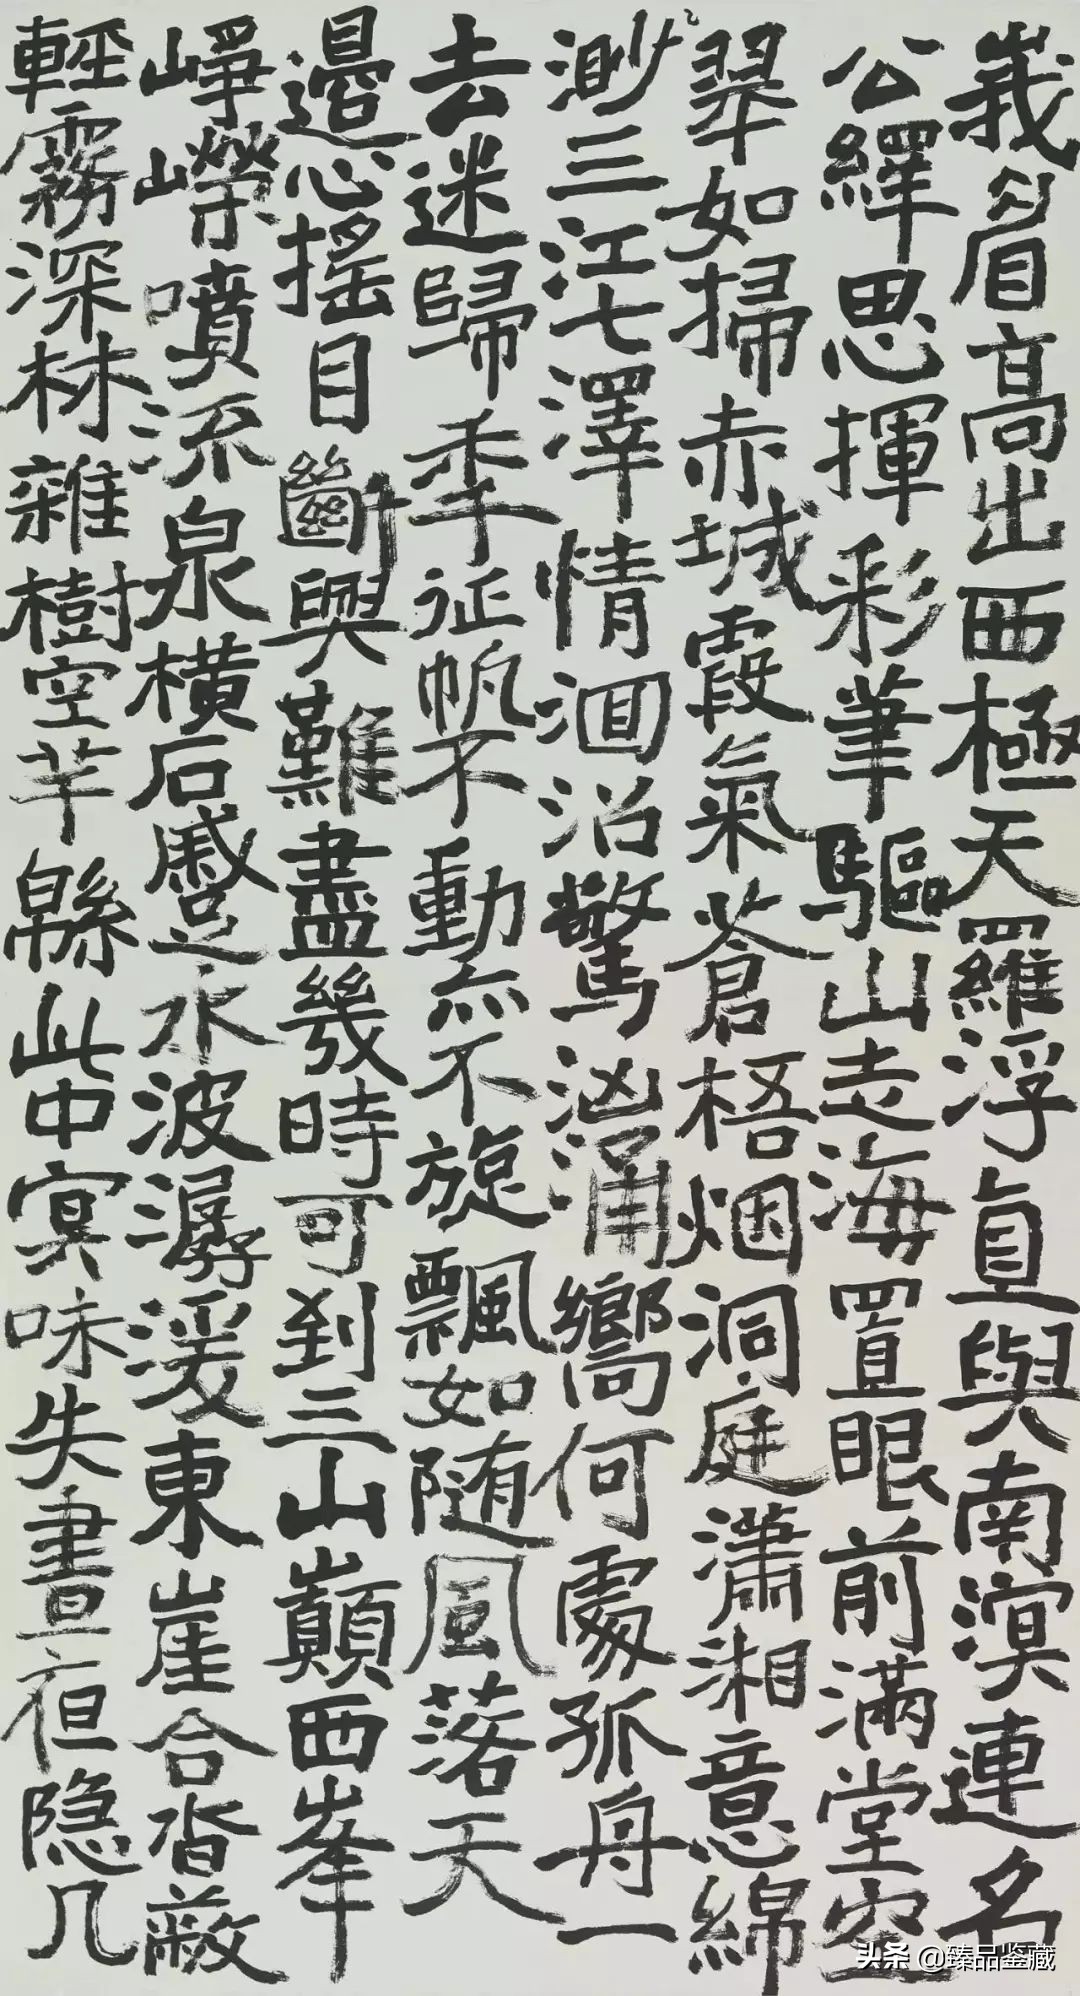 峩眉高出西極天羅浮直與南溟連名
公繹思揮彩筆驅山走海置眼前滿堂空
翠如掃赤城霞氣蒼梧烟洞庭瀟湘意綿
渺三江七澤情洄沿驚洶涌嚮何處孤舟一
去迷歸秊征帆不動亦不旋飄如随風落天
邉心摇目斷興難盡幾時可到三山巔西峯
崢嶸噴流泉橫石蹙水波潺湲東崖合沓蔽
輕霧深林雜樹空芊緜此中冥昧失晝夜隐几
头条 @臻品鉴藏